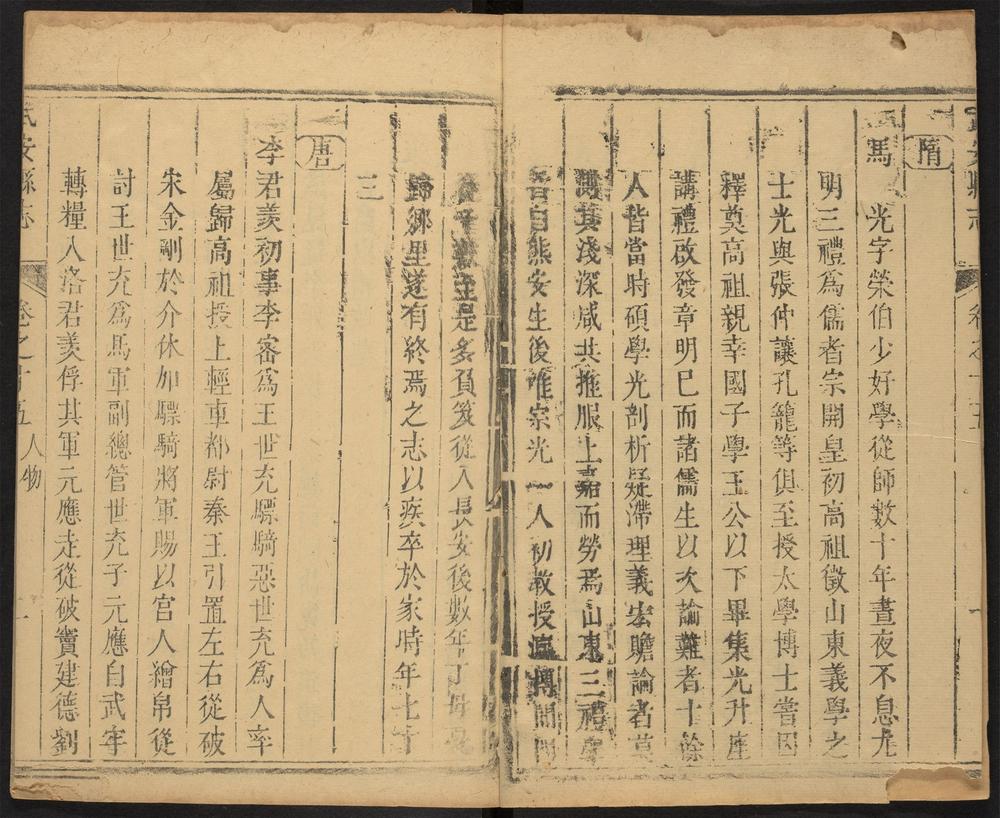 武安縣志 卷之十五 一
隋
馬光字榮伯少好學從師數十年晝夜不息尤
明三禮爲儒者宗開皇初高祖徵山東義學之
士光與張仲讓孔籠等俱至授太學博士嘗因
釋奠高祖親幸國子學王公以下畢集光升座
講禮啟發章明已而諸儒生以次論難者十餘
人皆當時碩學光剖析疑滯理義宏贍論者莫
測其淺深咸共推服上嘉而勞焉山東三禮學
者自熊安生後惟宗光一人初教授瀛博間門
徒千數至是多負笈從入長安後數年丁母憂
歸鄉里遂有終焉之志以疾卒於家時年七十
三
唐
李君羨初事李密爲王世充驃騎惡世充爲人率
屬歸高祖授上輕車都尉秦王引置左右從破
宋金剛於介休加驃騎將軍賜以宮人繒帛從
討王世充爲馬軍副總管世充子元應自武牢
轉糧入洛君羨俘其軍元應走從破竇建德劉
武安縣志 卷之十五 人物 一